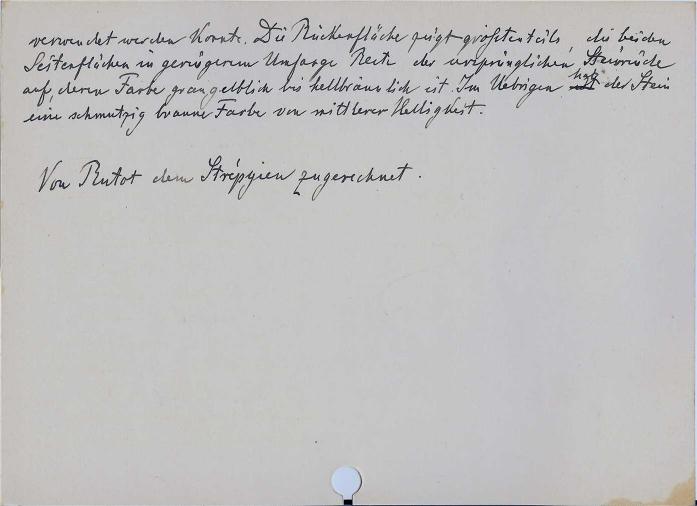 verwendet werden konnte. Die Rückenfläche zeigt größtenteils, die beiden
Seitenflächen in geringerem Umfange Reste der ursprünglichen Steinrinde
auf, deren Farbe graugelblich bis hellbräunlich ist. Im Uebrigen hat der Stein
eine schmutzig braune Farbe von mittlerer Helligkeit.
Von Rutot dem Strépyien zugerechnet.